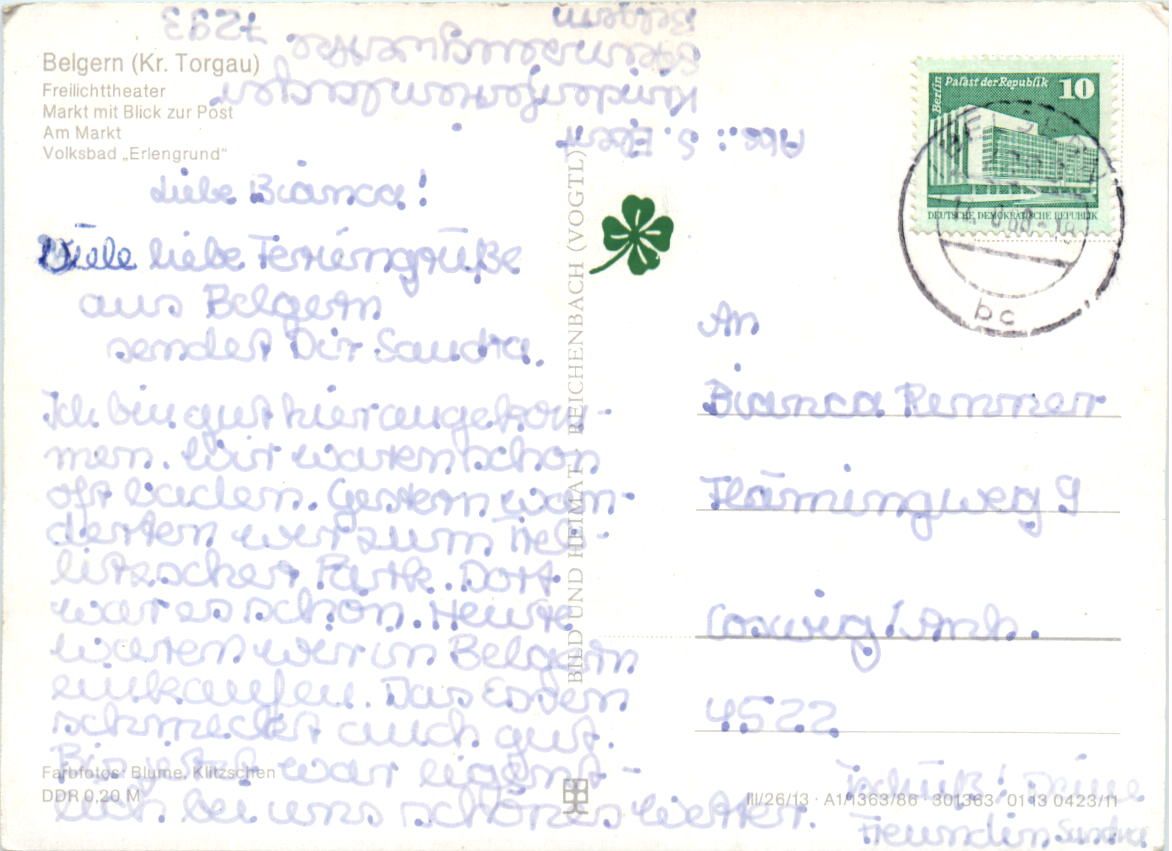 Belgern (Kr. Torgau)
Freilichttheater
Markt mit Blick zur Post
Am Markt
Volksbad „Erlengrund"
Abs.: S. Ebert
Kinderferienlager
7293
Belgern
Liebe Bianca!
Viele liebe Feriengrüße
aus Belgern
sendet Dir Sandra.
Ich bin gut hier angekom-
men. Wir waren schon
oft baden. Gestern wan-
derten wir zum
Park. Dort
war es schön. Heute
waren wir in Belgern
einkaufen. Das Essen
schmeckt auch gut.
Bis jetzt war eigent-
lich bei uns schönes Wetter.
Tschüß! Deine
Freundin Sandra
Farbfotos: Blume, Klitzschen
DDR 0,20 M
BILD UND HEIMAT REICHENBACH (VOGTL)
Berlin Palast der Republik 10
DEUTSCHE DEMOKRATISCHE REPUBLIK
bc
An
Bianca Renner
Flämingweg 9
Coswig/Anh.
4522
III/26/13 · A1/1363/86 301363 01 13 0423/11